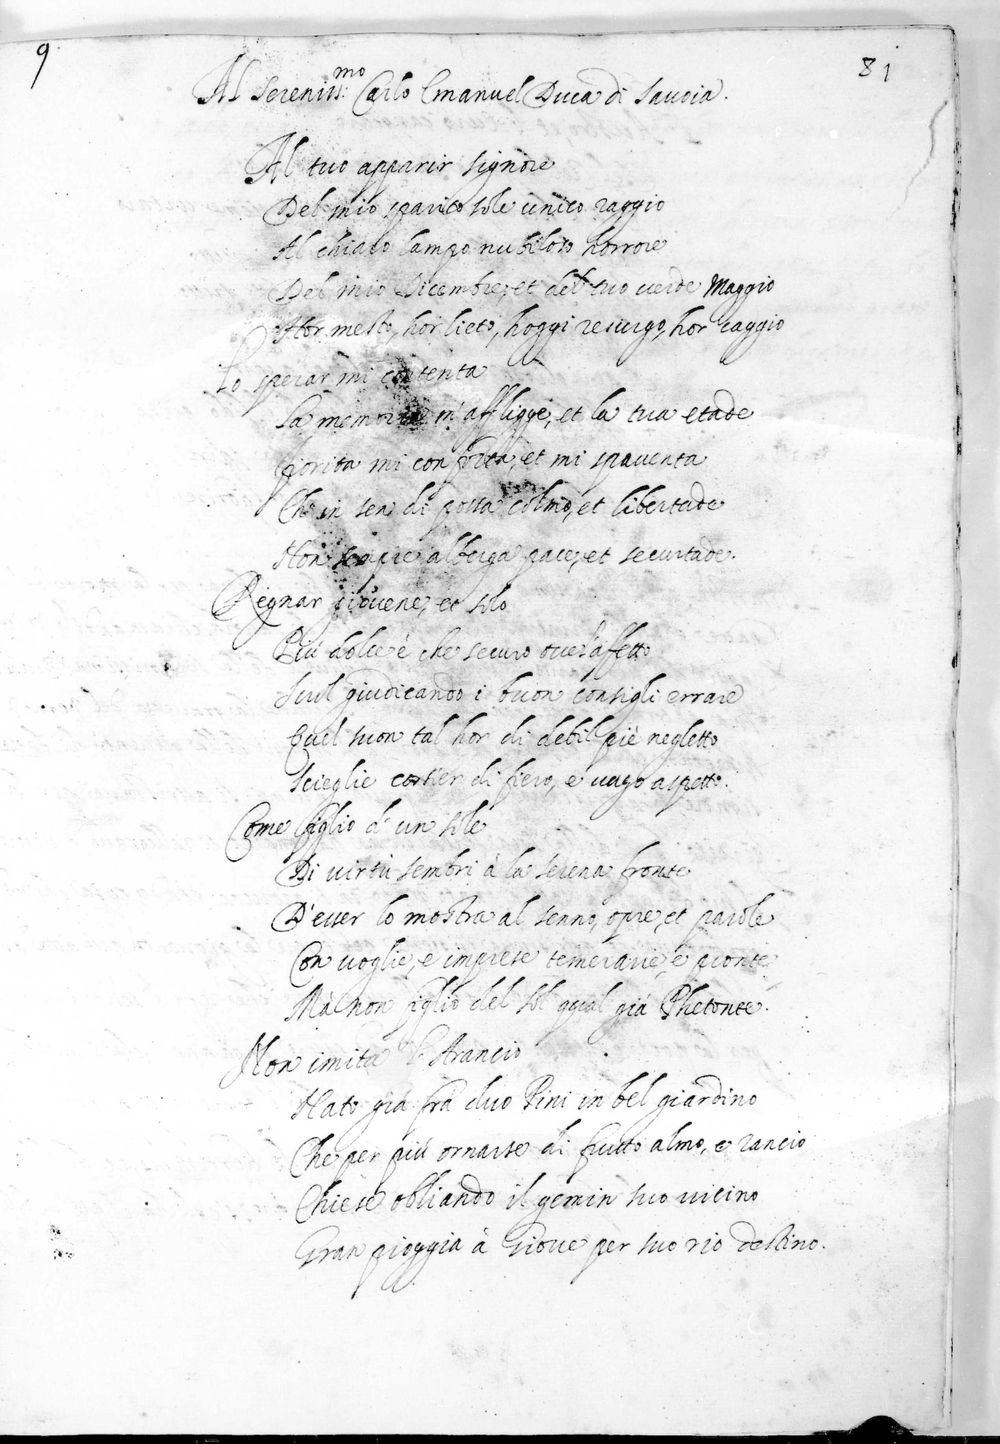 9
81
Al Sereniss:mo Carlo Emanuel Duca di Sauoia.
Al tuo apparir signore
Del mio sparito sole unico raggio
Al chiaro lampo nubiloso horrore
Del mio Dicembre, et del tuo uerde Maggio
Hor mesto, hor lieto, hoggi resurgo, hor caggio
Lo sperar mi contenta
La memoria m'affligge, et la tua etade
Fiorita mi conforta, et mi spauenta
Che in sen di possa colmo, et libertade
Non sempre alberga pace, et securtade.
Regnar giouene, et solo
Più dolce è che securo oue l'affetto
Suol giudicando i buon consigli errare
Quel suon tal hor di debil piè negletto
Scieglie corsier di fiero, e uago aspetto.
Come figlio d'un sole
Di uirtù sembri à la serena fronte
D'esser lo mostra al senno, opre, et parole
Con uoglie, e imprese temerarie, e pronte
Mà non figlio del sol qual già Phetonte.
Non imita l'Arancio
Nato già frà duo Pini in bel giardino
Che per più ornarse di frutto almo, e rancio
Chiese obliando il gemin suo uicino
Gran pioggia à Gioue per suo rio destino.